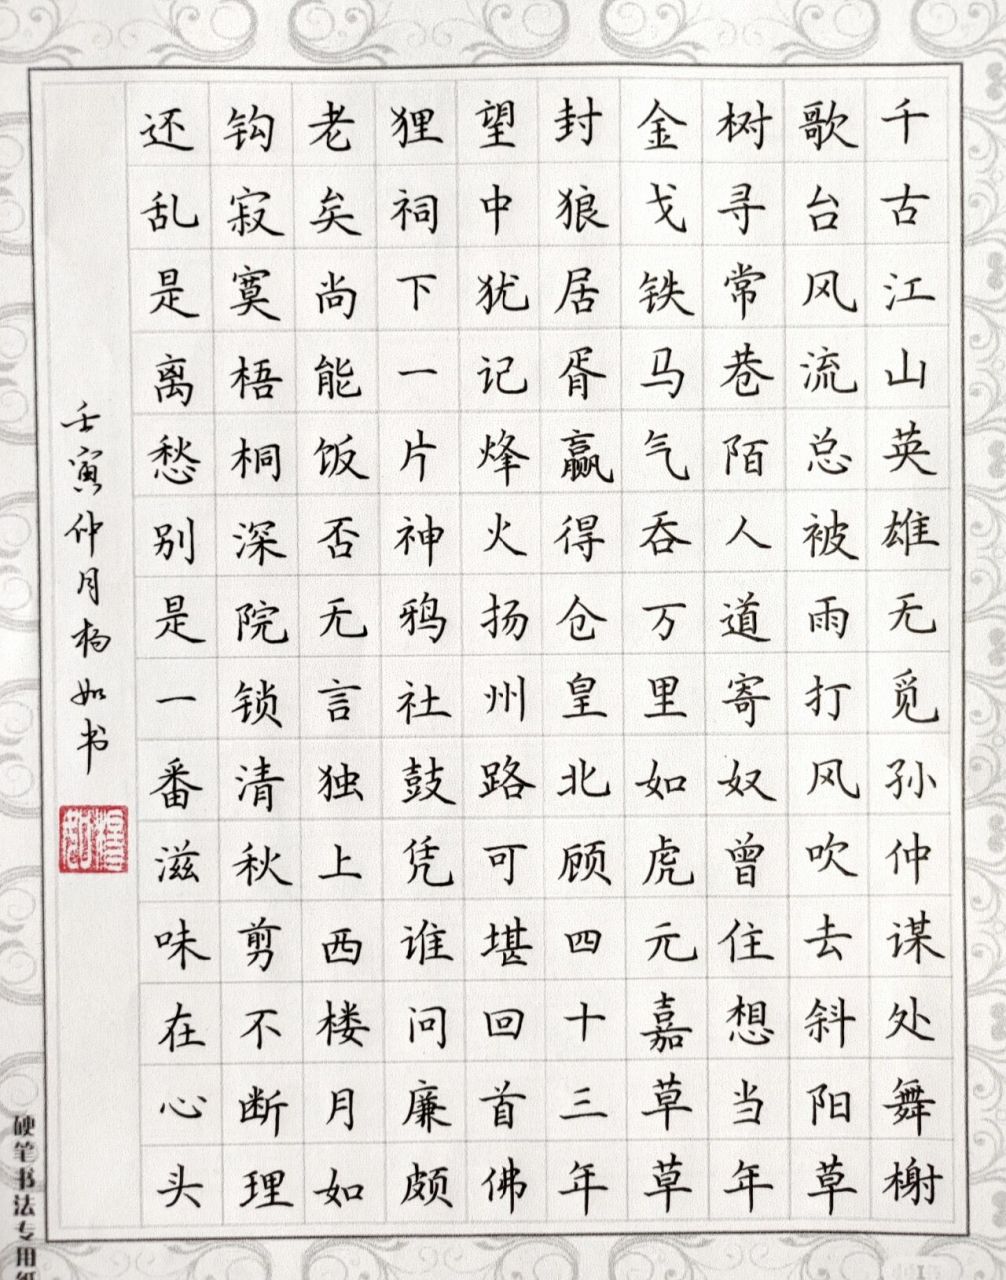 千古江山英雄无觅孙仲谋处舞榭
歌台风流总被雨打风吹去斜阳草
树寻常巷陌人道寄奴曾住想当年
金戈铁马气吞万里如虎元嘉草草
封狼居胥赢得仓皇北顾四十三年
望中犹记烽火扬州路可堪回首佛
狸祠下一片神鸦社鼓凭谁问廉颇
老矣尚能饭否无言独上西楼月如
钩寂寞梧桐深院锁清秋剪不断理
还乱是离愁别是一番滋味在心头
壬寅仲月杨如书
硬笔书法专用纸